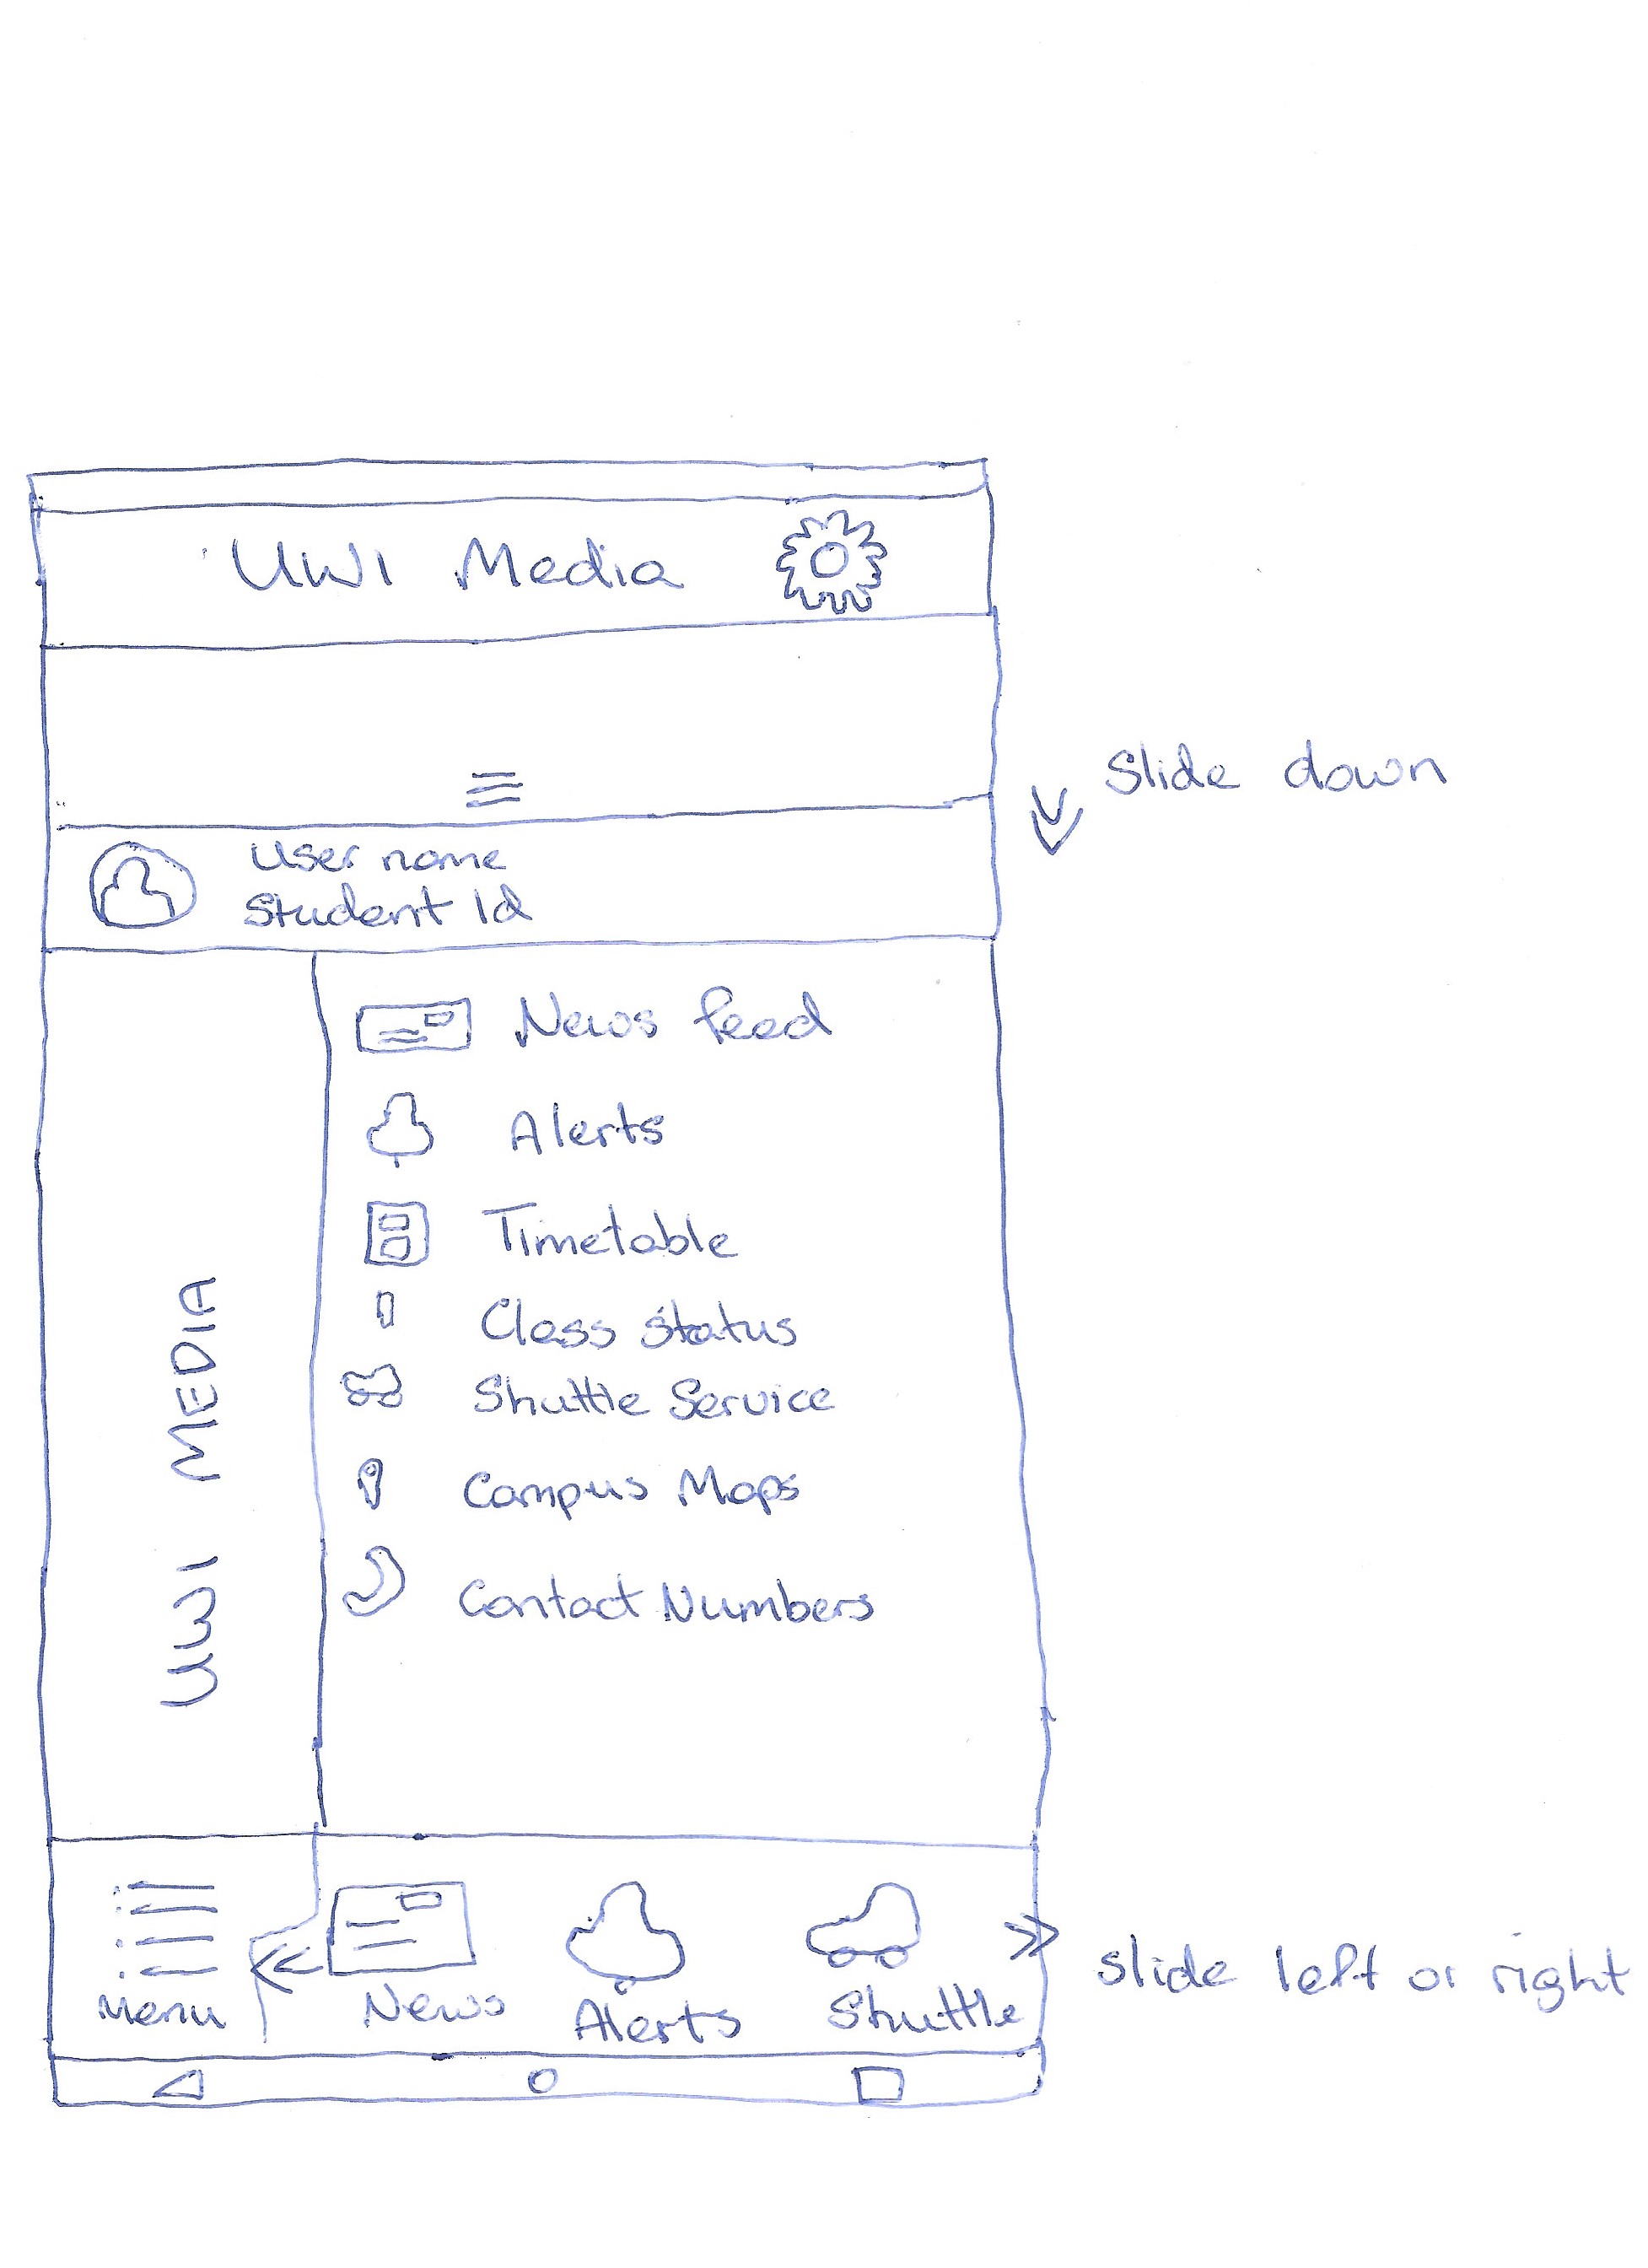 UWI Media
Slide down
User name
Student Id
News feed
Alerts
Timetable
Class Status
Shuttle Service
Campus Maps
Contact Numbers
UWI MEDIA
Menu
News
Alerts
Shuttle
slide left or right